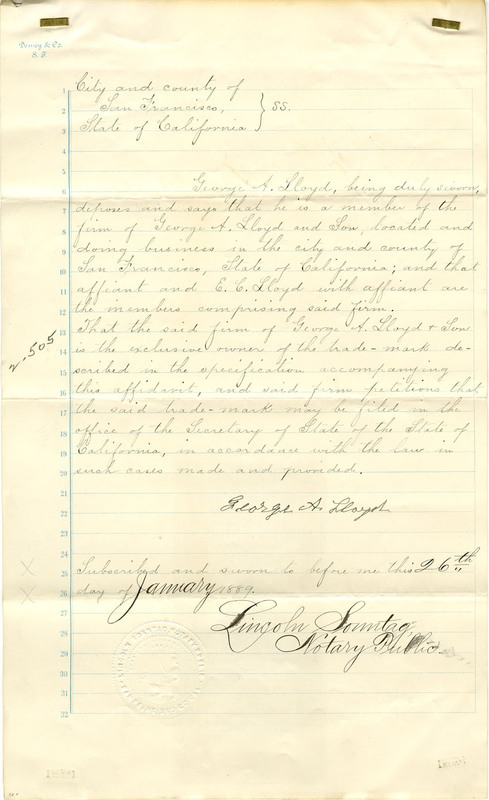 Dewey & Co.
S. F.
City and county of
San Francisco, } SS.
State of California
George A. Lloyd, being duly sworn,
deposes and says that he is a member of the
firm of George A. Lloyd and Son, located and
doing business in the city and county of
San Francisco, State of California; and that
affiant and E. C. Lloyd with affiant are
the members comprising said firm.
That the said firm of George A. Lloyd & Son
is the exclusive owner of the trade-mark de-
scribed in the specification accompanying
this affidavit, and said firm petitions that
the said trade-mark may be filed in the
office of the Secretary of State of the State of
California, in accordance with the law in
such cases made and provided.
George A. Lloyd
Subscribed and sworn to before me this 26th
day of January 1889.
Lincoln Sonntag
Notary Public
2-505
1
2
3
4
5
6
7
8
9
10
11
12
13
14
15
16
17
18
19
20
21
22
23
24
25
26
27
28
29
30
31
32